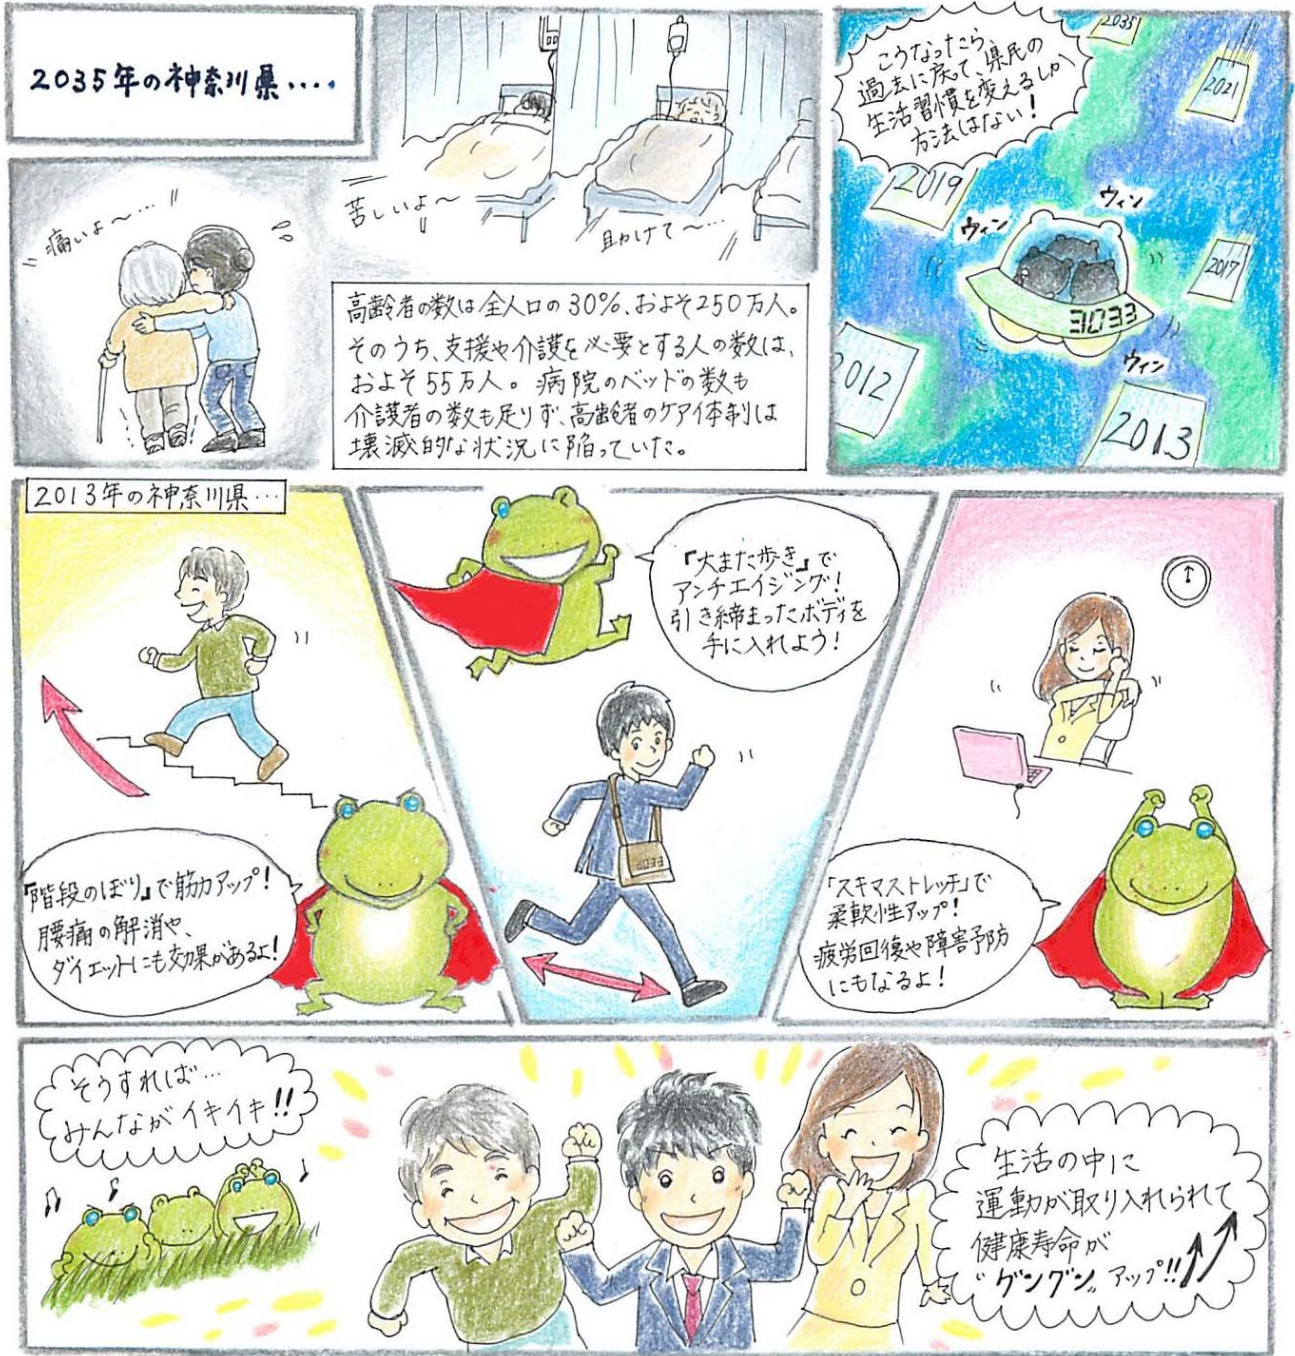 2035年の神奈川県....
痛いよ〜…
苦しいよ〜
助けて〜…
高齢者の数は全人口の30%、およそ250万人。
そのうち、支援や介護を必要とする人の数は、
およそ55万人。病院のベッドの数も
介護者の数も足りず、高齢者のケアイ体制は
壊滅的な状況に陥っていた。
こうなったら、
過去に戻って、県民の
生活習慣を変えるしか
方法はない!
2035
2021
2019
2017
2012
2013
ウィン
ウィン
ウィン
3033
2013年の神奈川県…
『階段のぼり』で筋力アップ!
腰痛の解消や、
ダイエットにも効果があるよ!
『大また歩き』で
アンチエイジング!
引き締まったボディを
手に入れよう!
「スキマストレッチ」で
柔軟性アップ!
疲労回復や障害予防
にもなるよ!
そうすれば…
みんながイキイキ!!
生活の中に
運動が取り入れられて
健康寿命が
"グングン"アップ!!